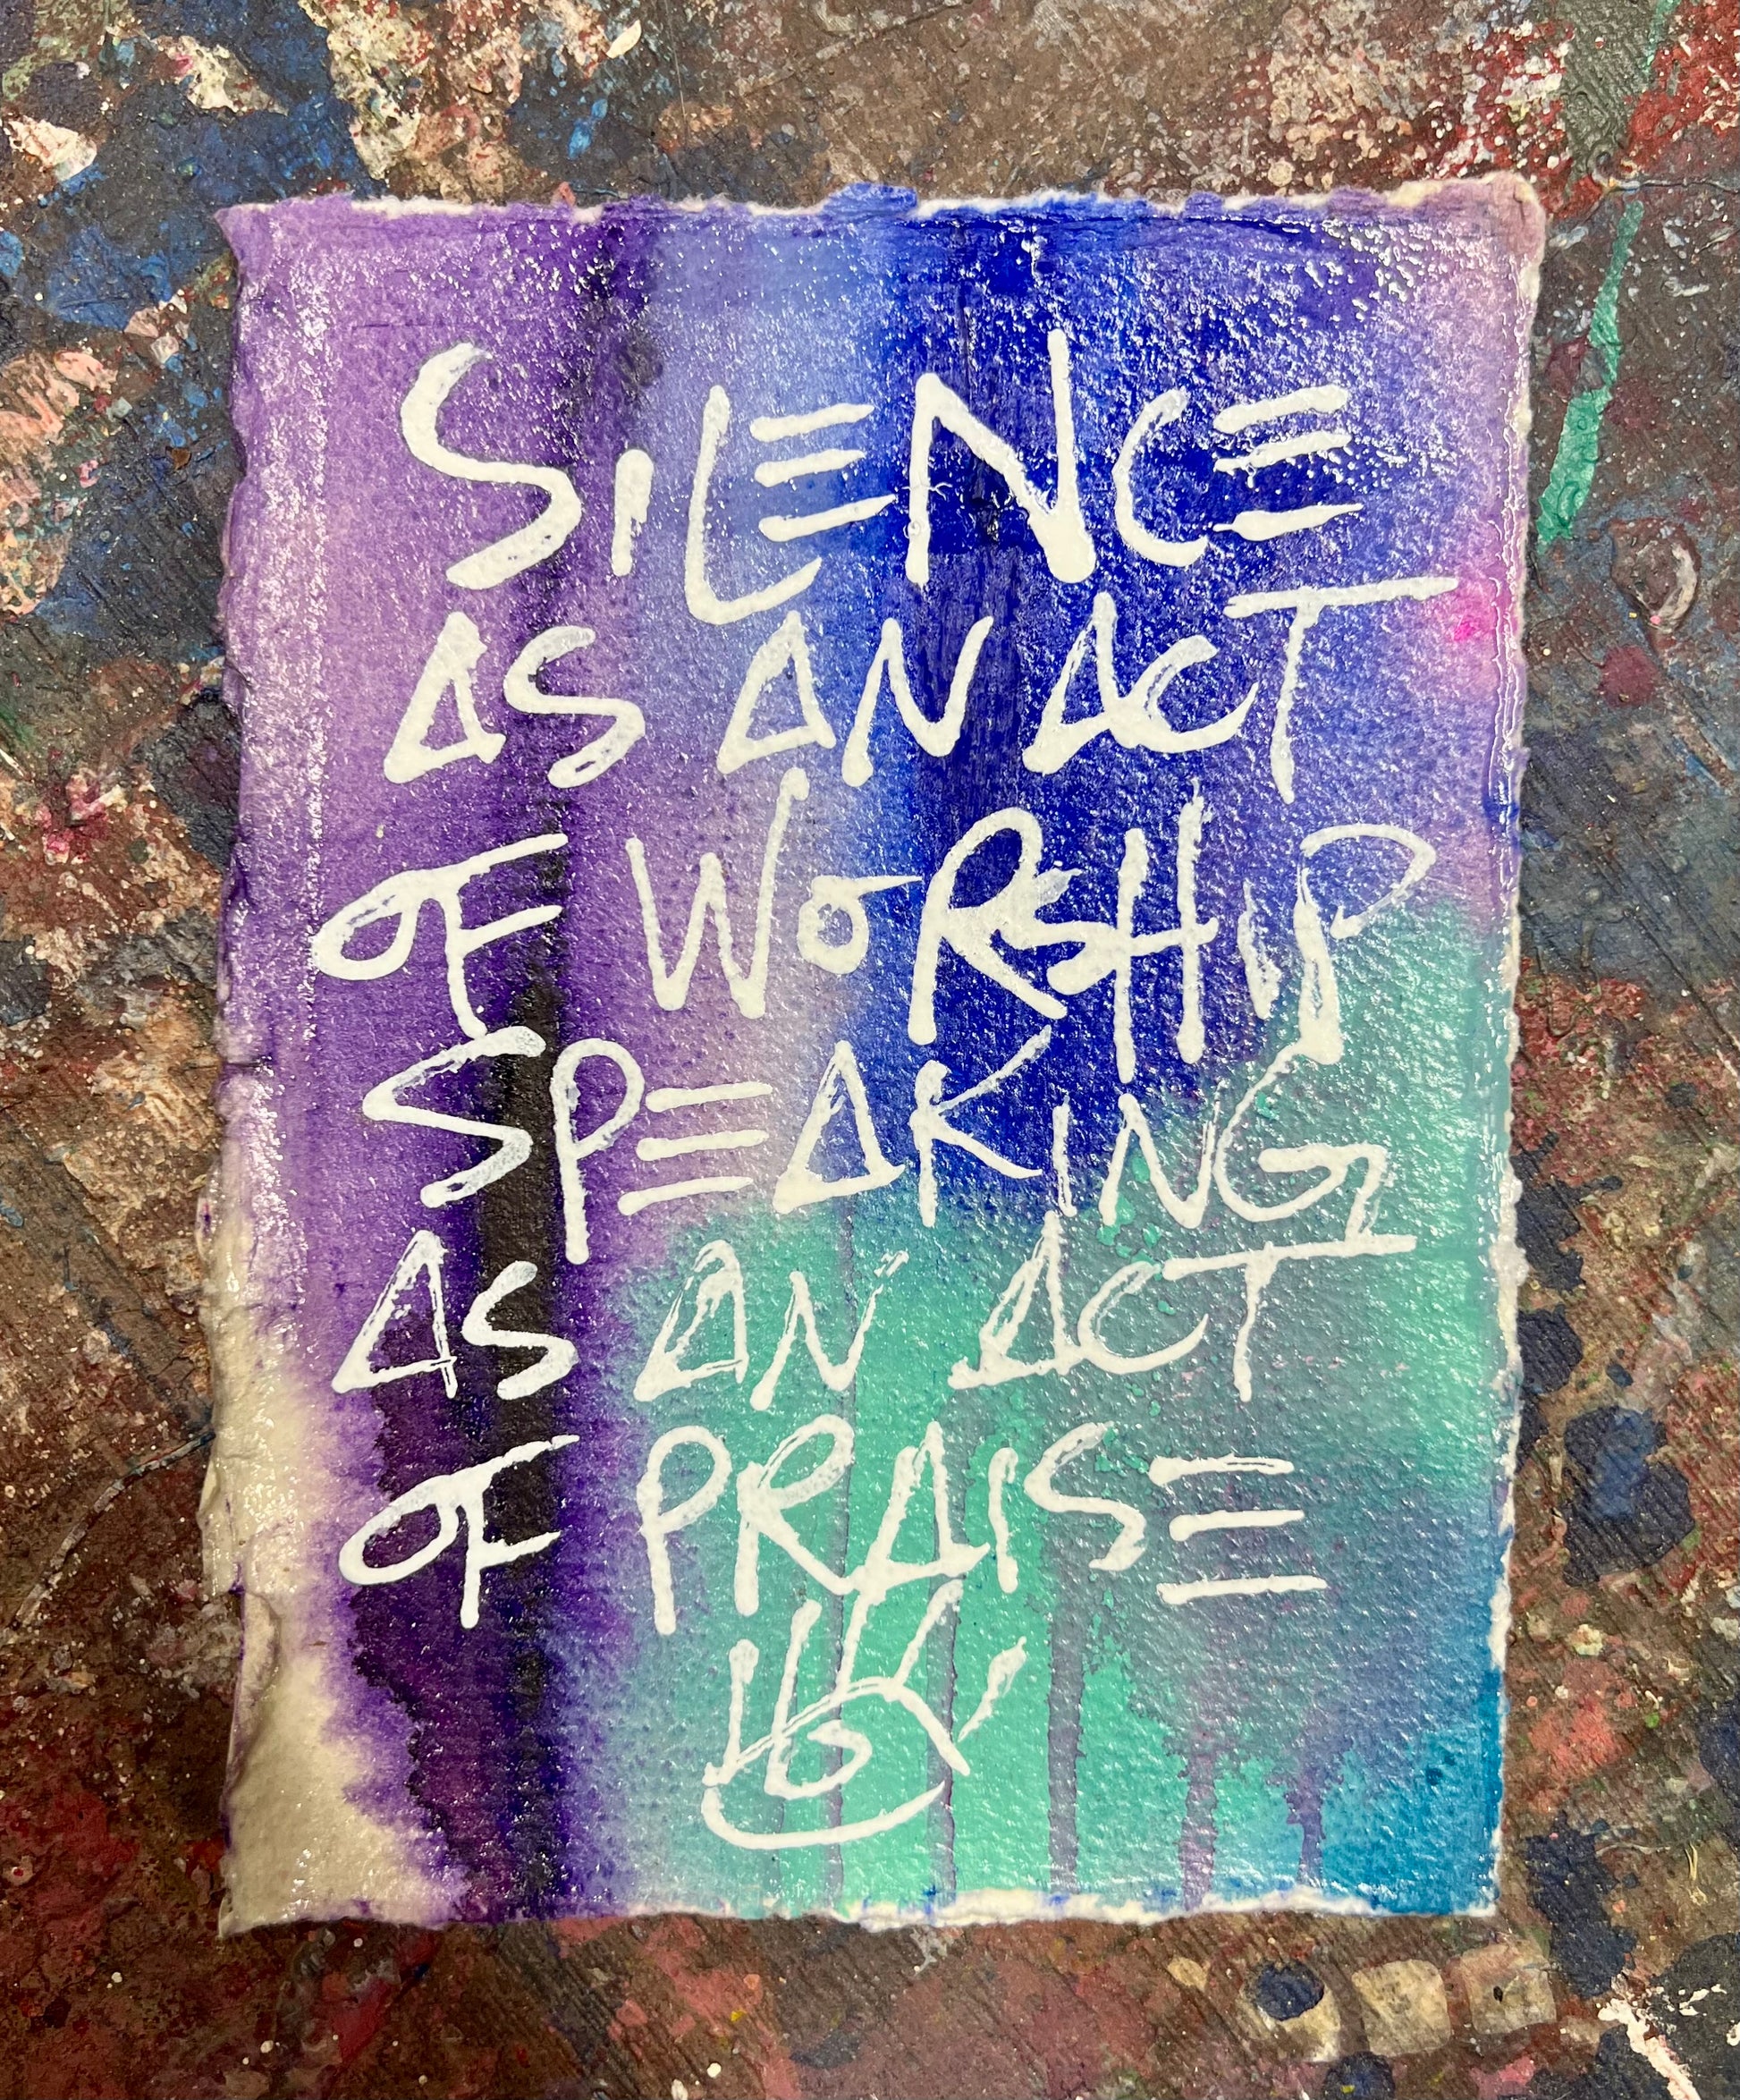 SiLENCE
AS AN ACT
OF WoRSHiP
SPEAKiNG
AS AN ACT
OF PRAiSE